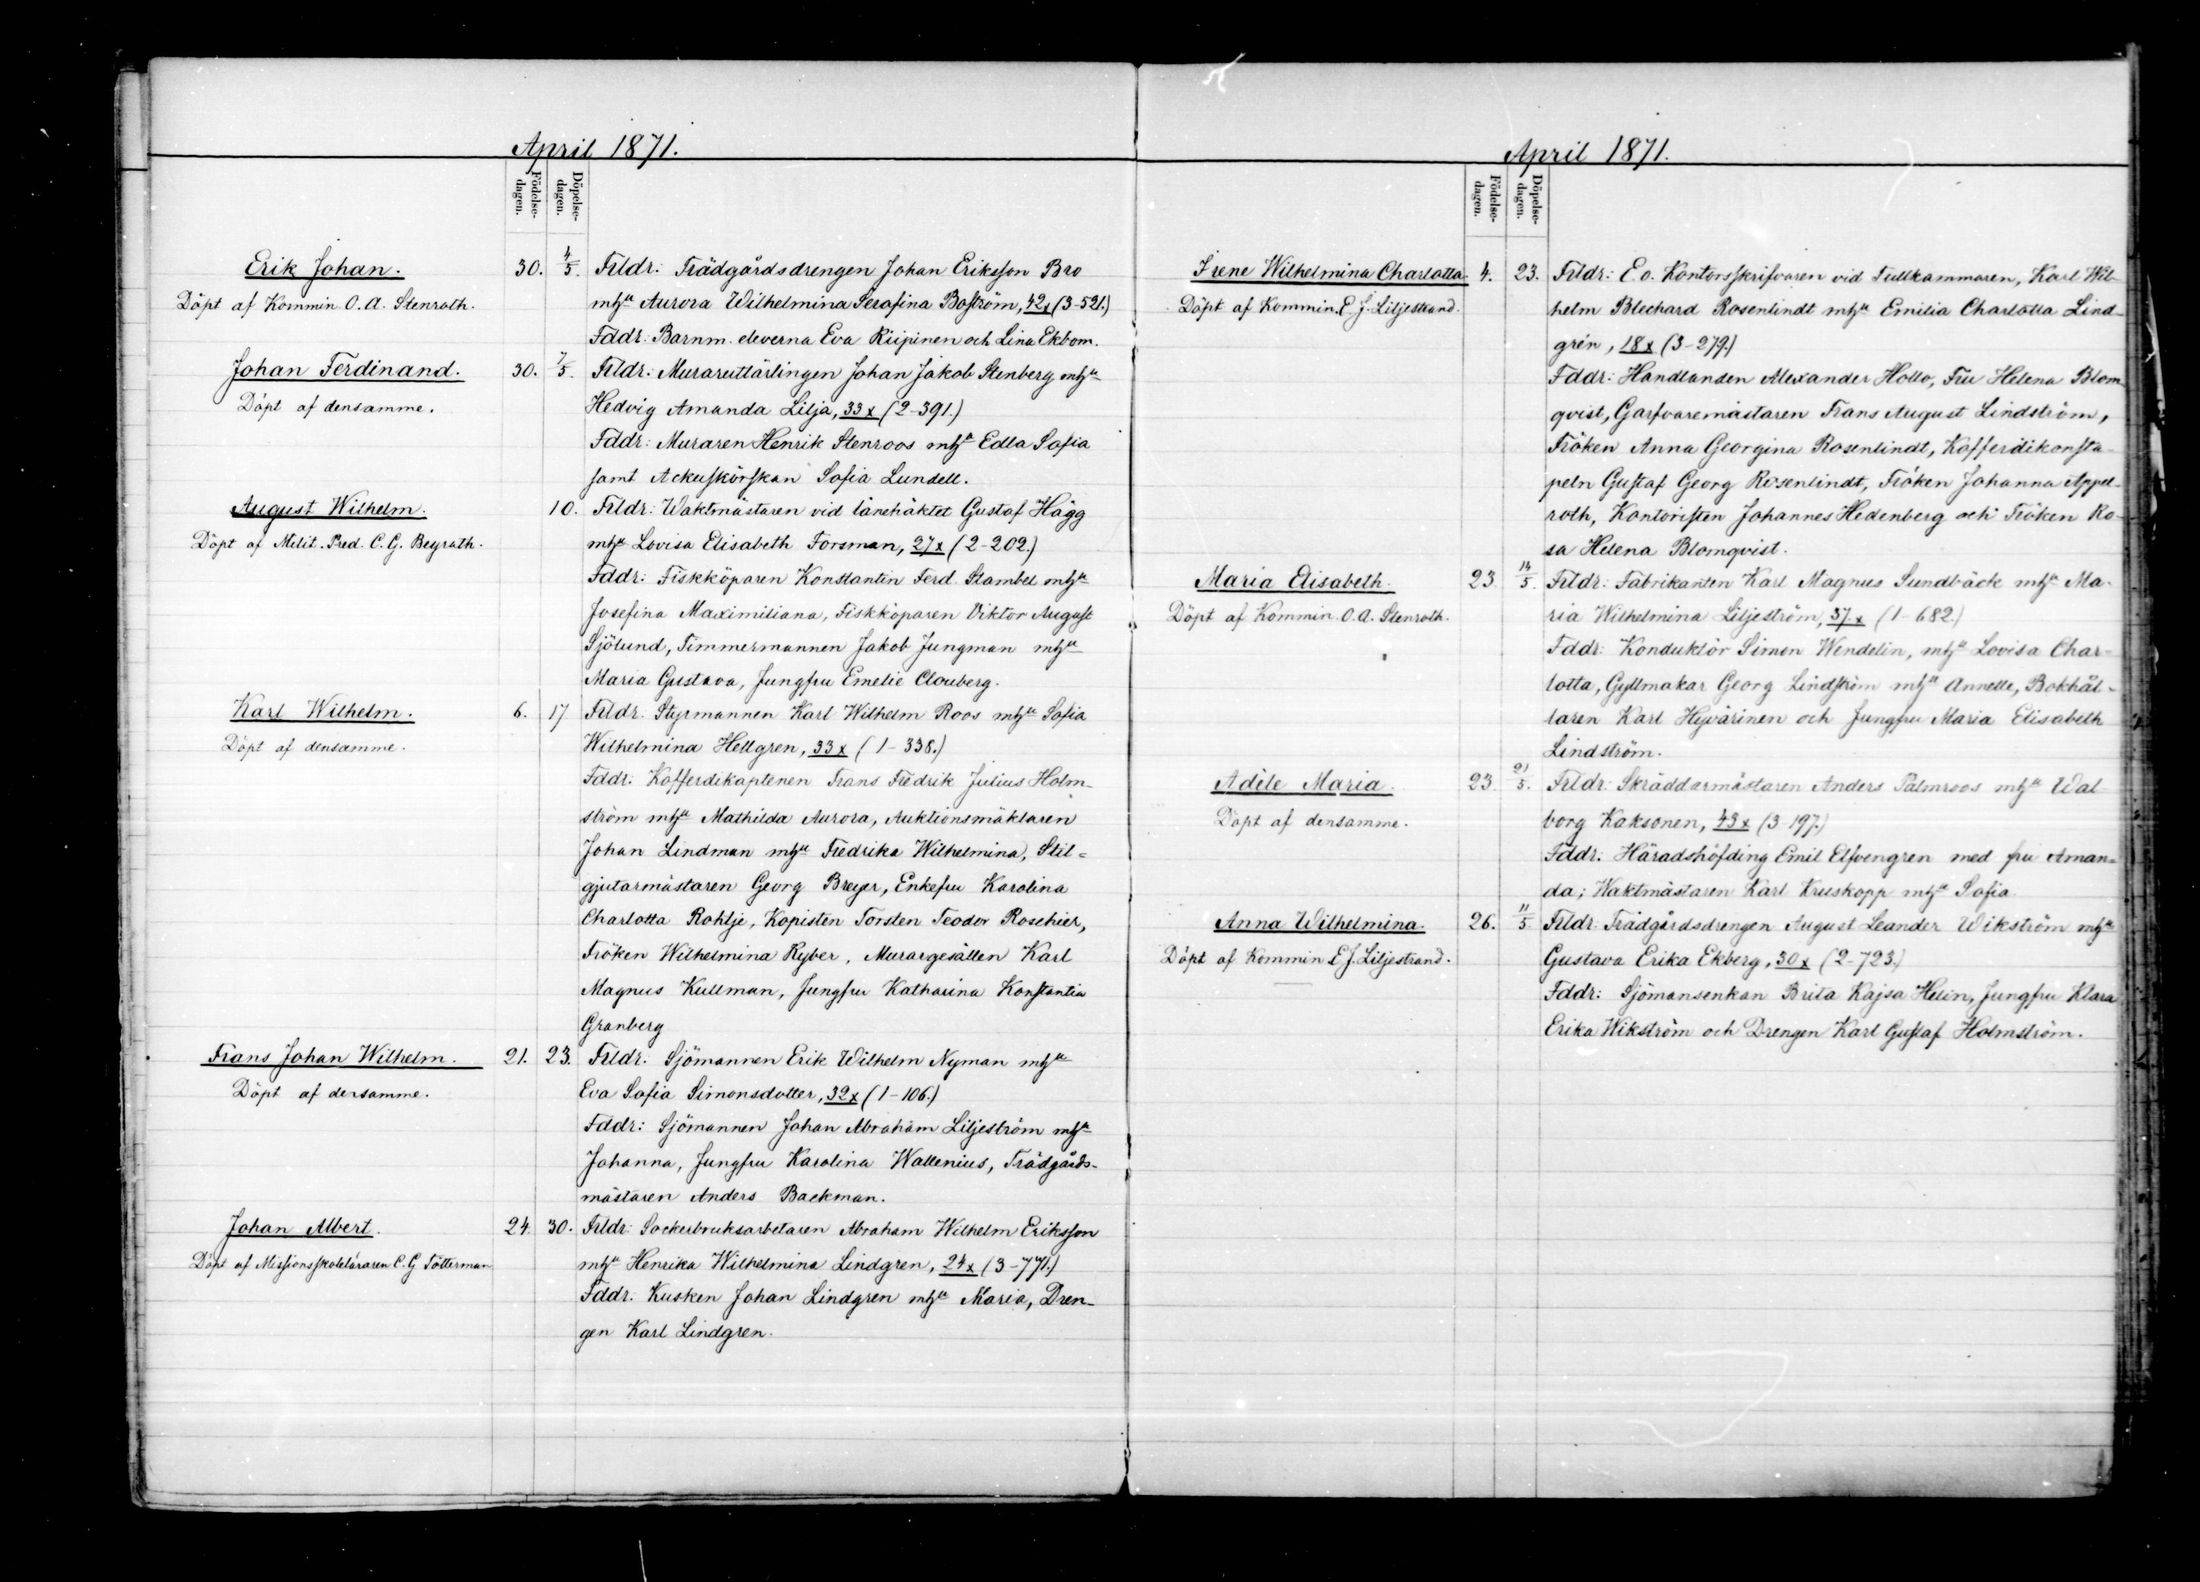 April 1871.
Födelse-dagen.
Döpelse-dagen.
Erik Johan. 30. 4/5. Frldr: Trädgårdsdrengen Johan Eriksson Bro
Döpt af Kommin. O. A. Stenroth. mhu Aurora Wilhelmina Serafina Boström, 42x (3-521.)
Fddr: Barnm. eleverna Eva Riipinen och Lina Ekbom.
Johan Ferdinand. 30. 7/5. Frldr: Murareutlärlingen Johan Jakob Stenberg mhu
Döpt af densamme. Hedvig Amanda Lilja, 33x (2-391.)
Fddr: Muraren Henrik Stenroos mhu Edla Sofia
samt Ackuskörskan Sofia Lundell.
August Wilhelm. 10. Frldr: Waktmästaren vid länehäktet Gustaf Hägg
Döpt af Milit. Pred. C. G. Beyrath. mhu Lovisa Elisabeth Forsman, 27x (2-202.)
Fddr: Fiskköparen Konstantin Ferd. Stambel mhu
Josefina Maximiliana, Fiskköparen Viktor August
Sjölund, Timmermannen Jakob Jungman mhu
Maria Gustava, Jungfru Emelie Clouberg.
Karl Wilhelm. 6. 17 Frldr. Styrmannen Karl Wilhelm Roos mhu Sofia
Döpt af densamme. Wilhelmina Hellgren, 33x (1-338.)
Fddr: Kofferdikaptenen Frans Fredrik Julius Holm-
ström mhu Mathilda Aurora, Auktionsmäklaren
Johan Lindman mhu Fredrika Wilhelmina, Stil-
gjutarmästaren Georg Breyer, Enkefru Karolina
Charlotta Rohtje, Kopisten Torsten Teodor Roschier,
Fröken Wilhelmina Ryber, Murargesällen Karl
Magnus Kullman, Jungfru Katharina Konstantia
Granberg
Frans Johan Wilhelm. 21. 23. Frldr: Sjömannen Erik Wilhelm Nyman mhu
Döpt af densamme. Eva Sofia Simonsdotter, 32x (1-106.)
Fddr: Sjömannen Johan Abraham Liljeström mhu
Johanna, Jungfru Karolina Wallenius, Trädgårds-
mästaren Anders Backman.
Johan Albert. 24. 30. Frldr: Sockerbruksarbetaren Abraham Wilhelm Eriksson
Döpt af Missionsskoleläraren C. G Tötterman mhu Henrika Wilhelmina Lindgren, 24x (3-771.)
Fddr. Kusken Johan Lindgren mhu Maria, Dren-
gen Karl Lindgren.
April 1871.
Födelse-dagen.
Döpelse-dagen.
Irene Wilhelmina Charlotta. 4. 23. Frldr: E. o. Kontorsskrifvaren vid Tullkammaren, Karl Wil-
Döpt af Kommin. E. J. Liljestrand. helm Blechard Rosenlindt mhu Emilia Charlotta Lind-
grén, 18x (3-279.)
Fddr: Handlanden Alexander Hollo, Fru Helena Blom
qvist, Garfvaremästaren Frans August Lindström,
Fröken Anna Georgina Rosenlindt, Kofferdikonsta-
peln Gustaf Georg Rosenlindt, Fröken Johanna Appel-
roth, Kontoristen Johannes Hedenberg och Fröken Ro-
sa Helena Blomqvist.
Maria Elisabeth. 23 14/5. Frldr: Fabrikanten Karl Magnus Sundbäck mhu Ma-
Döpt af Kommin. O. A. Stenroth. ria Wilhelmina Liljeström, 37x (1-682.)
Fddr: Konduktör Simon Wendelin, mhu Lovisa Char-
lotta, Gyllmakar Georg Lindström mhu Annette, Bokhål-
laren Karl Hyvärinen och Jungfru Maria Elisabeth
Lindström.
Adèle Maria. 23. 21/5. Frldr: Skräddarmästaren Anders Palmroos mhu Wal-
Döpt af densamme. borg Kaksonen, 43x (3-197.)
Fddr: Häradshöfding Emil Elfvengren med fru Aman-
da; Waktmästaren Karl Kruskopp mhu Sofia
Anna Wilhelmina. 26. 11/5 Frldr: Trädgårdsdrengen August Leander Wikström mhu
Döpt af Kommin E J. Liljestrand. Gustava Erika Ekberg, 30x (2-723.)
Fddr: Sjömansenkan Brita Kajsa Helin, Jungfru Klara
Erika Wikström och Drengen Karl Gustaf Holmström.